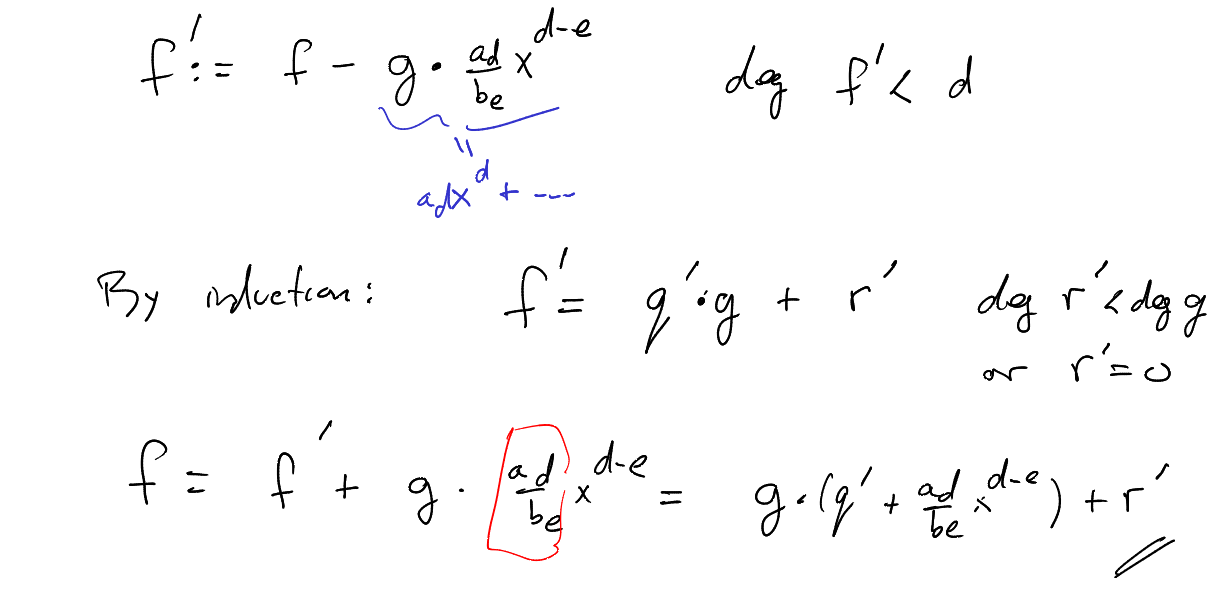 f' := f - g · \frac{a_d}{b_e} x^{d-e}   deg f' < d
a_d x^d + ---
By induction: f' = q' · g + r'   deg r' < deg g
or r' = 0
f = f' + g · \frac{a_d}{b_e} x^{d-e} = g · (q' + \frac{a_d}{b_e} x^{d-e}) + r'